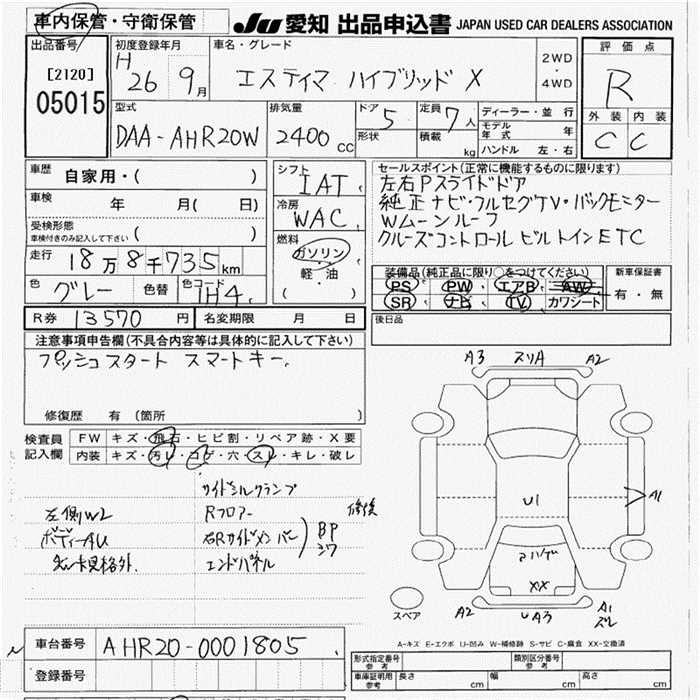 車内保管・守衛保管
JU 愛知 出品申込書 JAPAN USED CAR DEALERS ASSOCIATION
出品番号
[2120]
05015
初度登録年月
H 26 9月
車名・グレード
エスティマ ハイブリッド X
2WD
・
4WD
評価点
R
外装 内装
C C
型式
DAA-AHR20W
排気量
2400 CC
ドア 5
形状
定員 7人
積載 kg
ディーラー・並行
モデル年式 年
ハンドル 左・右
車歴 自家用・( )
車検 年 月( 日)
受検形態
車検付きのみ記入して下さい ( )
走行 18万8千735km
色 グレー 色替 色コード 1H4
シフト
IAT
冷房
WAC
燃料
ガソリン
・
軽・油
( )
セールスポイント(正常に機能するものに限ります)
左右Pスライドドア
純正ナビ・フルセグTV・バックモニター
Wムーンルーフ
クルーズコントロール ビルトインETC
装備品(純正品に限り○をつけてください)
PS PW エアB AW
SR ナビ TV カワシート
新車保証書
有・無
後日品
R券 13570円 名変期限 月 日
注意事項申告欄(不具合内容等は具体的に記入して下さい)
プッシュスタート スマートキー
修復歴 有(箇所 )
検査員
記入欄
FW キズ・飛石・ヒビ割・リペア跡・X要
内装 キズ・汚レ・コゲ・穴・スレ・キレ・破レ
サイドシルクランプ
左側W2 Rフロアー 修復
ボディーAU 右Rサイドメンバー BP
エンドパネル
A3 スリA A2
U1
A1
ハゲ
XX
スペア
A2 UA3 A1
ズレ
A-キズ E-エクボ U-凹み W-補修跡 S-サビ C-腐食 XX-交換済
車台番号 AHR20-0001805
登録番号
形式指定番号
参考
類別区分番号
参考
車庫証明用
参考
長さ cm 幅 cm 高さ cm